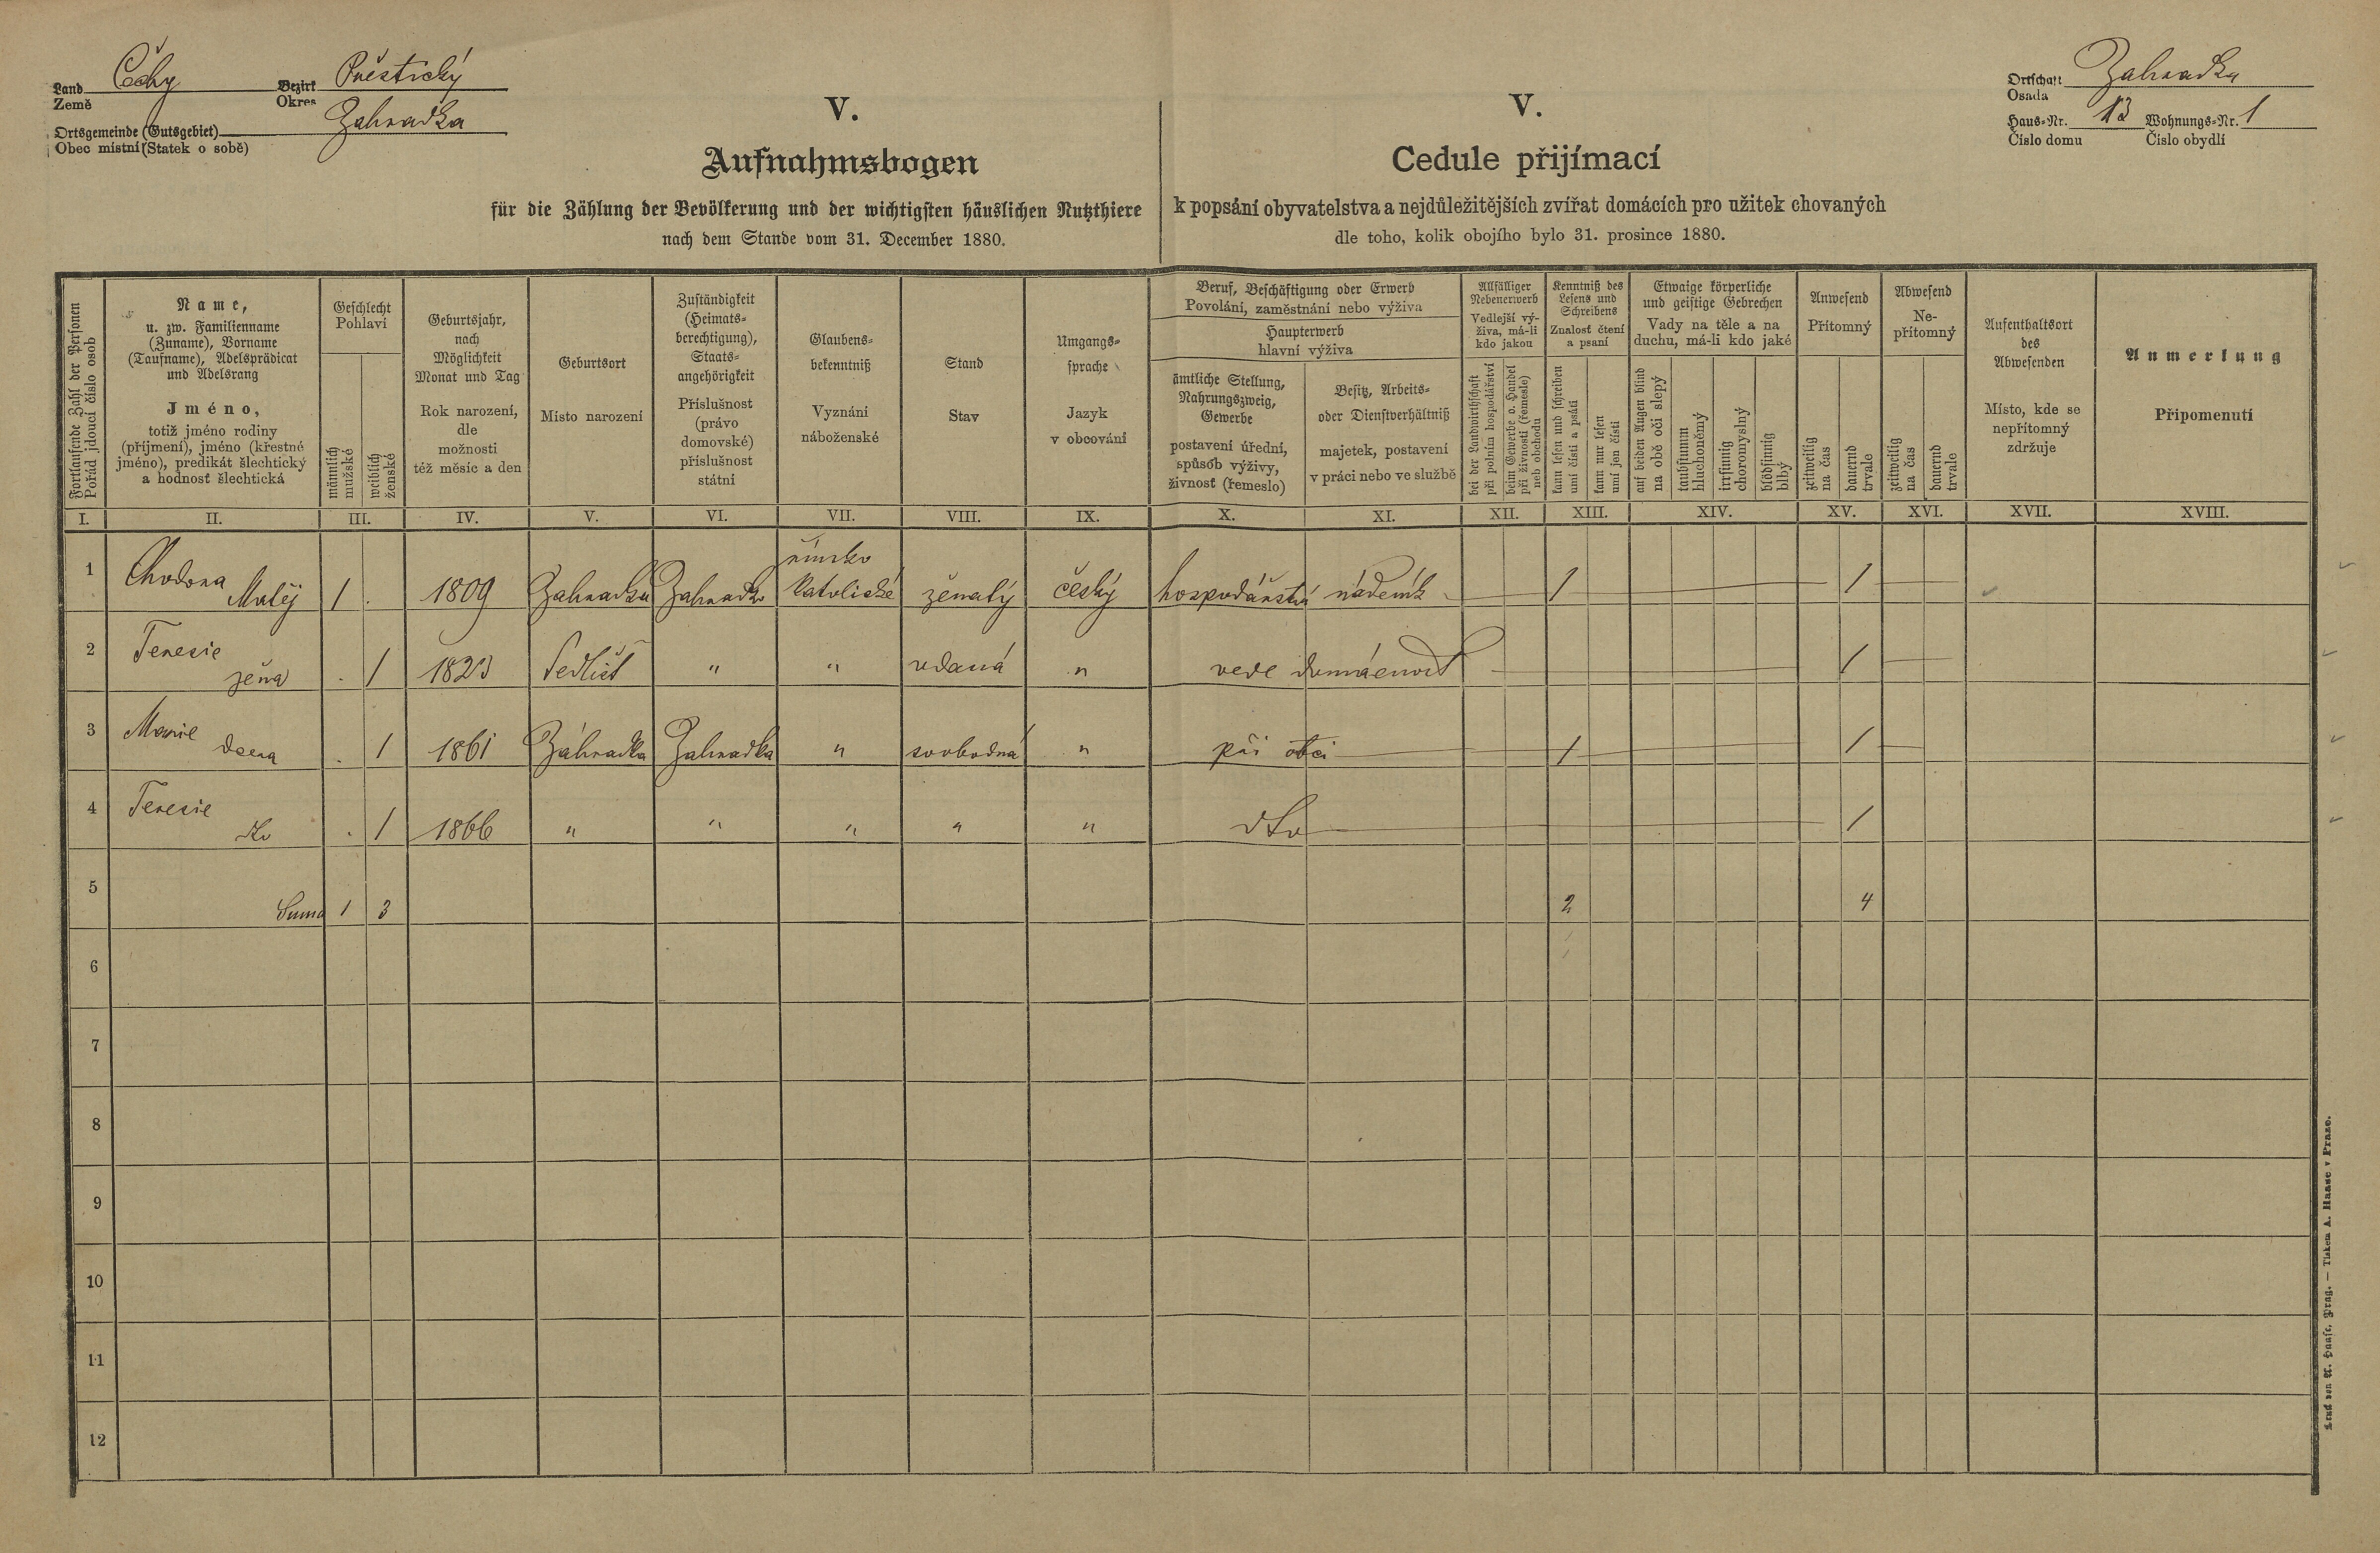 Land Čechy Bezirk Přestický
Země Okres
Ortsgemeinde (Gutsgebiet) Zahradka
Obec místní (Statek o sobě)
V.
Aufnahmsbogen
für die Zählung der Bevölkerung und der wichtigsten häuslichen Nutzthiere
nach dem Stande vom 31. December 1880.
V.
Cedule přijímací
k popsání obyvatelstva a nejdůležitějších zvířat domácích pro užitek chovaných
dle toho, kolik obojího bylo 31. prosince 1880.
Ortschaft Zahradka
Osada
Haus-Nr. 13 Wohnungs-Nr. 1
Číslo domu Číslo obydlí
Fortlaufende Zahl der Personen
Pořád jdoucí číslo osob
Name,
u. zw. Familienname
(Zuname), Vorname
(Taufname), Adelsprädicat
und Adelsrang
Jméno,
totiž jméno rodiny
(příjmení), jméno (křestné
jméno), predikát šlechtický
a hodnosť šlechtická
Geschlecht
Pohlaví
männlich
mužské
weiblich
ženské
Geburtsjahr,
nach
Möglichkeit
Monat und Tag
Rok narození,
dle
možnosti
též měsíc a den
Geburtsort
Místo narození
Zuständigkeit
(Heimats-
berechtigung),
Staats-
angehörigkeit
Příslušnost
(právo
domovské)
příslušnost
státní
Glaubens-
bekenntniß
Vyznání
náboženské
Stand
Stav
Umgangs-
sprache
Jazyk
v obcování
Beruf, Beschäftigung oder Erwerb
Povolání, zaměstnání nebo výživa
Haupterwerb
hlavní výživa
ämtliche Stellung,
Nahrungszweig,
Gewerbe
postavení úřední,
spůsob výživy,
živnosť (řemeslo)
Besitz, Arbeits-
oder Dienstverhältniß
majetek, postavení
v práci nebo ve službě
Allfälliger
Nebenerwerb
Vedlejší vý-
živa, má-li
kdo jakou
bei der Landwirthschaft
při polním hospodářství
beim Gewerbe o. Handel
při živnosti (řemesle)
neb obchodu
Kenntniß des
Lesens und
Schreibens
Znalosť čtení
a psaní
kann lesen und schreiben
umí čísti a psáti
kann nur lesen
umí jen čísti
Etwaige körperliche
und geistige Gebrechen
Vady na těle a na
duchu, má-li kdo jaké
auf beiden Augen blind
na obě oči slepý
taubstumm
hluchoněmý
irrsinnig
choromyslný
blödsinnig
blbý
Anwesend
Přítomný
zeitweilig
na čas
dauernd
trvale
Abwesend
Ne-
přítomný
zeitweilig
na čas
dauernd
trvale
Aufenthaltsort
des
Abwesenden
Místo, kde se
nepřítomný
zdržuje
Anmerkung
Připomenutí
I. II. III. IV. V. VI. VII. VIII. IX. X. XI. XII. XIII. XIV. XV. XVI. XVII. XVIII.
1 Chodora Matěj 1 . 1809 Zahradka Zahradka římsko katolické ženatý český hospodářství nádeník 1 1
2 Teresie žena . 1 1823 Sedliště " " vdaná " vede domácnost 1
3 Marie dcera . 1 1861 Záhradka Zahradka " svobodná " při otci 1 1
4 Teresie dto . 1 1866 " " " " " dto 1
5 Suma 1 3 2 4
6
7
8
9
10
11
12
Druck von A. Haase, Prag. — Tiskem A. Haase v Praze.